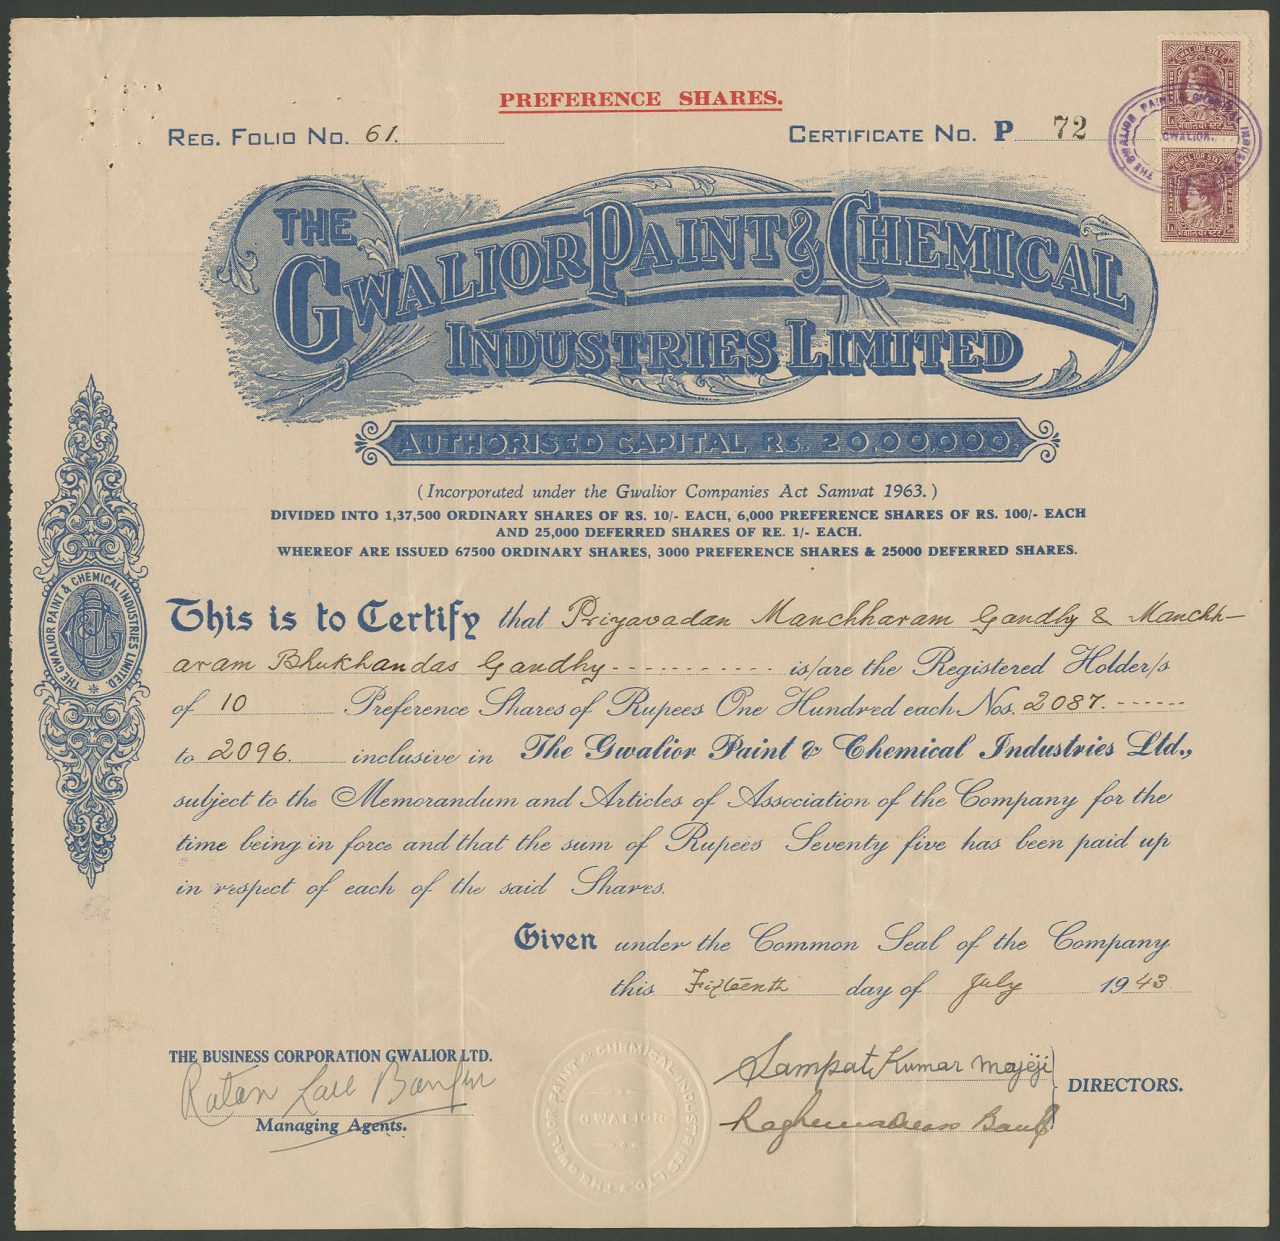 PREFERENCE SHARES.
REG. FOLIO NO. 61.
CERTIFICATE NO. P 72
GWALIOR STATE
THE GWALIOR PAINT & CHEMICAL INDUSTRIES
GWALIOR.
GWALIOR STATE
THE GWALIOR PAINT & CHEMICAL
INDUSTRIES LIMITED
AUTHORISED CAPITAL RS. 20,00,000.
(Incorporated under the Gwalior Companies Act Samvat 1963.)
DIVIDED INTO 1,37,500 ORDINARY SHARES OF RS. 10/- EACH, 6,000 PREFERENCE SHARES OF RS. 100/- EACH
AND 25,000 DEFERRED SHARES OF RE. 1/- EACH.
WHEREOF ARE ISSUED 67500 ORDINARY SHARES, 3000 PREFERENCE SHARES & 25000 DEFERRED SHARES.
THE GWALIOR PAINT & CHEMICAL INDUSTRIES LIMITED.
This is to Certify that Priyavadan Manchharam Gandhy & Manchh-
aram Bhukhandas Gandhy is/are the Registered Holder/s
of 10 Preference Shares of Rupees One Hundred each Nos. 2087.
to 2096. inclusive in The Gwalior Paint & Chemical Industries Ltd.,
subject to the Memorandum and Articles of Association of the Company for the
time being in force and that the sum of Rupees Seventy five has been paid up
in respect of each of the said Shares.
Given under the Common Seal of the Company
this Fifteenth day of July 1943.
THE BUSINESS CORPORATION GWALIOR LTD.
Ratan Lall
Managing Agents.
THE GWALIOR PAINT & CHEMICAL INDUSTRIES LTD.
GWALIOR
Sampat Kumar
DIRECTORS.